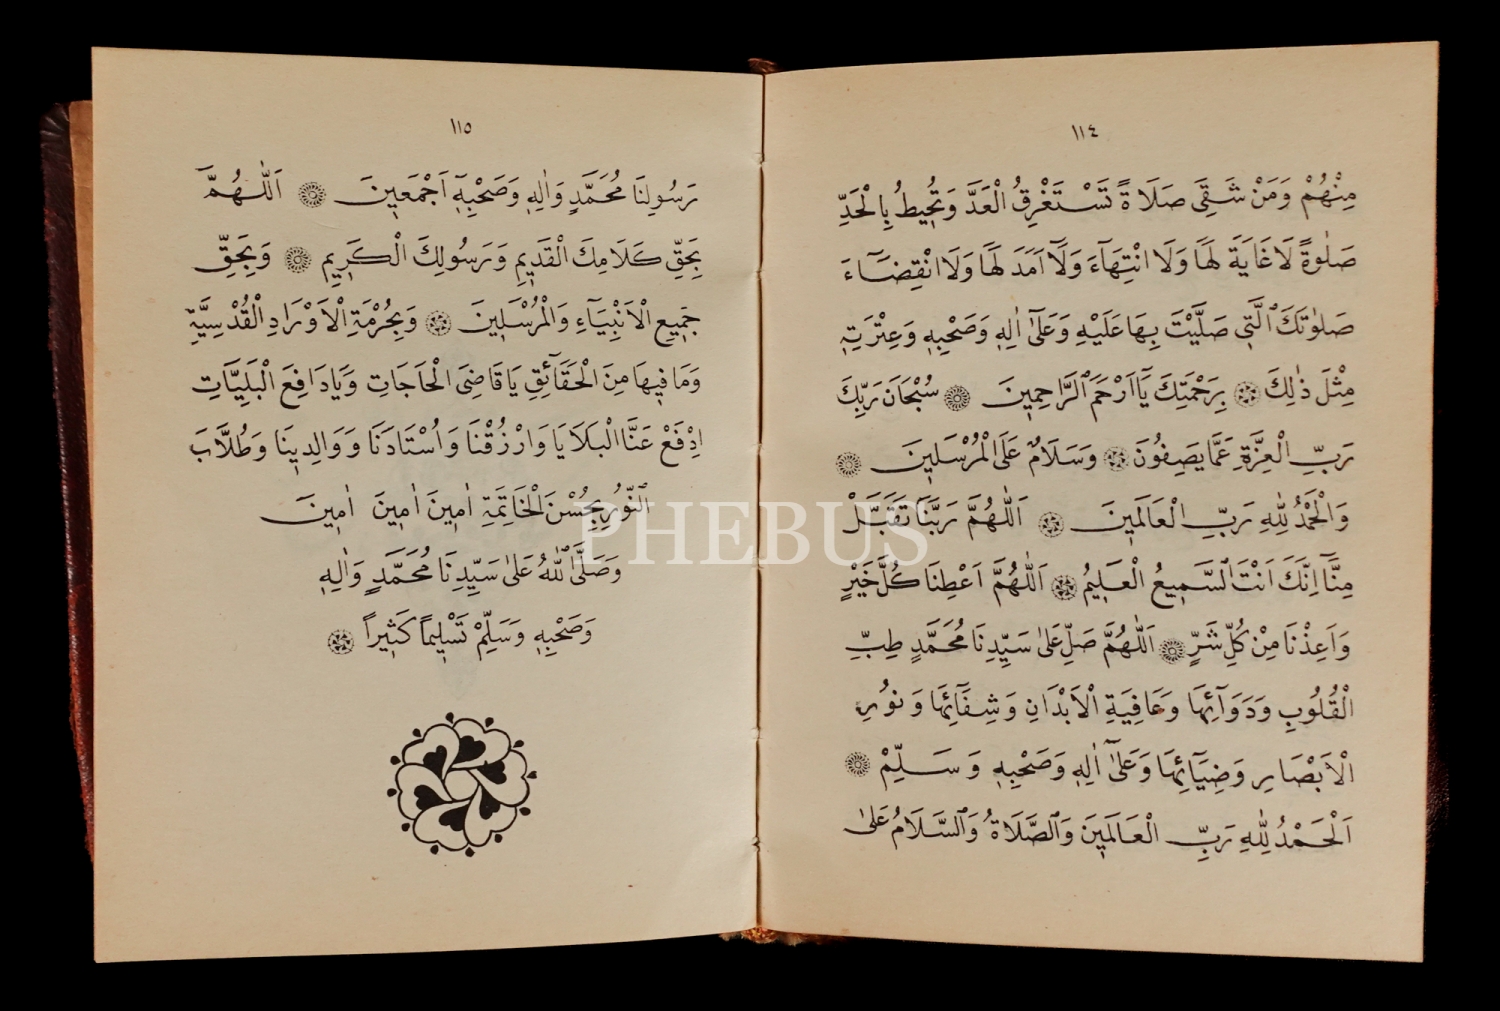 ١١٤
مِنْهُمْ وَمَنْ شَقِىَ صَلَاةً تَسْتَغْرِقُ الْعَدَّ وَتُحِيطُ بِالْحَدِّ
صَلٰوةً لَا غَايَةَ لَهَا وَلَا انْتِهَآءَ وَلَآ اَمَدَ لَهَا وَلَا انْقِضَآءَ
صَلٰوتَكَ الَّتِى صَلَّيْتَ بِهَا عَلَيْهِ وَعَلٰٓى اٰلِهِ وَصَحْبِهِ وَعِتْرَتِهِ
مِثْلَ ذٰلِكَ ۞ بِرَحْمَتِكَ يَآ اَرْحَمَ الرَّاحِمِينَ ۞ سُبْحَانَ رَبِّكَ
رَبِّ الْعِزَّةِ عَمَّا يَصِفُونَ ۞ وَسَلَامٌ عَلَى الْمُرْسَلِينَ ۞
وَالْحَمْدُ لِلّٰهِ رَبِّ الْعَالَمِينَ ۞ اَللّٰهُمَّ رَبَّنَا تَقَبَّلْ
مِنَّآ اِنَّكَ اَنْتَ السَّمِيعُ الْعَلِيمُ ۞ اَللّٰهُمَّ اَعْطِنَا كُلَّ خَيْرٍ
وَاَعِذْنَا مِنْ كُلِّ شَرٍّ ۞ اَللّٰهُمَّ صَلِّ عَلٰى سَيِّدِنَا مُحَمَّدٍ طِبِّ
الْقُلُوبِ وَدَوَآئِهَا وَعَافِيَةِ الْاَبْدَانِ وَشِفَآئِهَا وَنُورِ
الْاَبْصَارِ وَضِيَآئِهَا وَعَلٰٓى اٰلِهِ وَصَحْبِهِ وَسَلِّمْ ۞
اَلْحَمْدُ لِلّٰهِ رَبِّ الْعَالَمِينَ وَالصَّلَاةُ وَالسَّلَامُ عَلٰى
١١٥
رَسُولِنَا مُحَمَّدٍ وَاٰلِهِ وَصَحْبِهِٓ اَجْمَعِينَ ۞ اَللّٰهُمَّ
بِحَقِّ كَلَامِكَ الْقَدِيمِ وَرَسُولِكَ الْكَرِيمِ ۞ وَبِحَقِّ
جَمِيعِ الْاَنْبِيَآءِ وَالْمُرْسَلِينَ ۞ وَبِحُرْمَةِ الْاَوْرَادِ الْقُدْسِيَّةِ
وَمَا فِيهَا مِنَ الْحَقَآئِقِ يَا قَاضِىَ الْحَاجَاتِ وَيَا دَافِعَ الْبَلِيَّاتِ
اِدْفَعْ عَنَّا الْبَلَايَا وَارْزُقْنَا وَاُسْتَادَنَا وَوَالِدِينَا وَطُلَّابَ
النُّورِ بِحُسْنِ الْخَاتِمَةِ اٰمِينَ اٰمِينَ اٰمِينَ
وَصَلَّى اللّٰهُ عَلٰى سَيِّدِنَا مُحَمَّدٍ وَاٰلِهِ
وَصَحْبِهِ وَسَلِّمْ تَسْلِيمًا كَثِيرًا ۞
PHEBUS